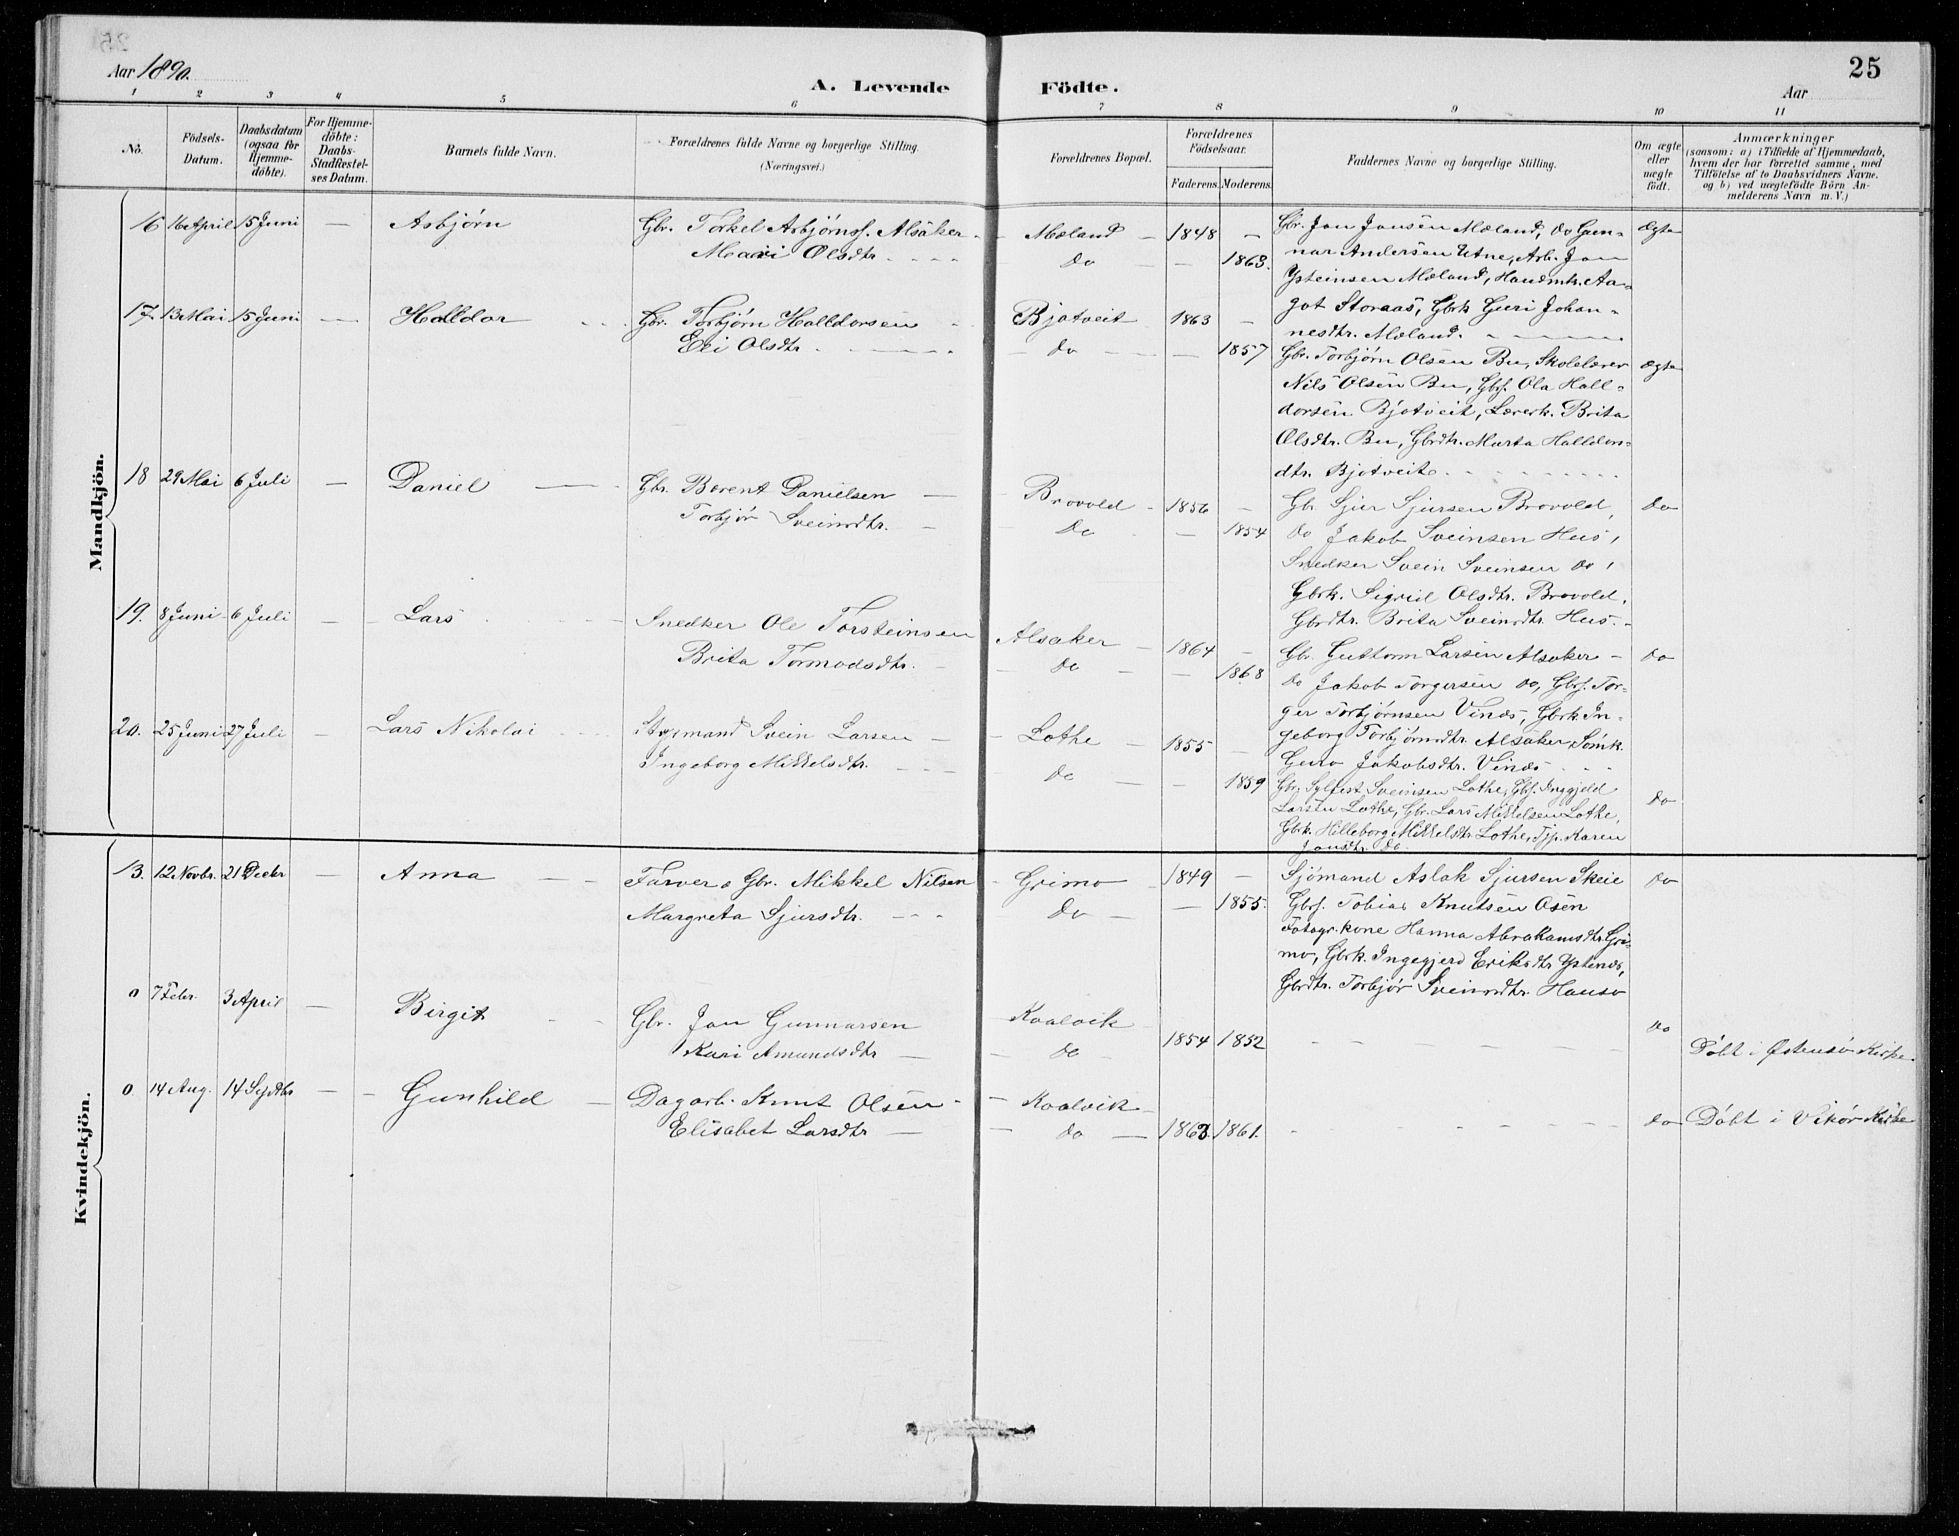 Aar 1890.
A. Levende Födte.
25
Aar
1 2 3 4 5 6 7 8 9 10 11
No.
Födsels-Datum.
Daabsdatum (ogsaa for Hjemme-döbte).
For Hjemme-döbte: Daabs-Stadfestel-ses Datum.
Barnets fulde Navn.
Forældrenes fulde Navne og borgerlige Stilling. (Næringsvei.)
Forældrenes Bopæl.
Forældrenes Födselsaar.
Faderens. Moderens.
Faddernes Navne og borgerlige Stilling.
Om ægte eller uægte födt.
Anmærkninger
(saasom: a) i Tilfælde af Hjemmedaab,
hvem der har forrettet samme, med
Tilföielse af to Daabsvidners Navne.
og b) ved uægtefödte Börn An-
melderens Navn m. V.)
Mandkjön.
16 16 April 15 Juni — Asbjørn Gbr. Torkel Asbjørns. Alsaker Mæland 1848 — Gbr. Jon Jonsen Mæland, do Gun- Ægte
Mari Olsdtr. do — 1863. nar Andersen Utne, Arb. Jon
Ysteinsen Mæland, Handmtr. Aa-
got Storaas, Gbrk Guri Johan-
nesdtr. Mæland.
17 13 Mai 15 Juni — Halldor Gbr. Torbjørn Halldorsen Bjotveit 1863 —
Eli Olsdtr. do — 1857 Gbr. Torbjørn Olsen Bu, Skolelærer Ægte
Nils Olsen Bu, Gbs. Ola Hall-
dorsen Bjotveit, Lærerk. Brita
Olsdtr. Bu, Gbrdtr. Marta Halldors-
dtr. Bjotveit.
18 29 Mai 6 Juli — Daniel Gbr. Berent Danielsen Brovold 1856 — Gbr Sjur Sjursen Brovold, do
Torbjør Sveinsdtr. do — 1854 do Jakob Sveinsen Hus,
Snedker Svein Sveinsen do,
Gbrk. Sigrid Olsdtr. Brovold,
Gbrdtr. Brita Sveinsdtr. Hus.
19. 8 Juni 6 Juli — Lars Snedker Ole Torsteinsen Alsaker 1864 — Gbr. Guttorm Larsen Alsaker — do
Brita Tormodsdtr. do — 1868 do Jakob Torgersen do, Gbs. Tor-
ger Torbjørnsen Vines, Gbrk In-
geborg Torbjørnsdtr. Alsaker, Sömk.
Guro Jakobsdtr. Vines
20. 25 Juni 27 Juli — Lars Nikolai Svein Larsen Lothe 1855 —
Ingeborg Mikkelsdtr. do — 1859 Gbr. Sylfest Sveinsen Lothe, Gbs. Inggjeld do
Larsen Lothe, Gbr. Lars Mikkelsen Lothe,
Gbrk. Hilleborg Mikkelsdtr Lothe, Tjp. Karen
Jonsdtr. do.
Kvindekjön.
13. 12 Novbr. 21 Decbr — Anna Farver & Gbr. Mikkel Nilsen Grimo 1849 — Sjömand Aslak Sjursen Skeie do
Margreta Sjursdtr. do — 1855. Gbs. Tobias Knutsen Osen
Fotogr. kone Hanna Abrahamsdtr Gri-
mo, Gbrk. Ingegjerd Eriksdtr Ystenes,
Gbrdtr. Torbjør Sveinsdtr. Hauso
0 7 Febr. 3 April — Birgit Gbr. Jon Gunnarsen Kvalvik 1854 1852 — do Döbt i Østensö Kirke.
Kari Amundsdtr do
0 14 Aug. 14 Septbr — Gunhild Dagarb. Knut Olsen Kvalvik 1863. 1861. — do Döbt i Vikör Kirke
Elisabet Larsdtr do